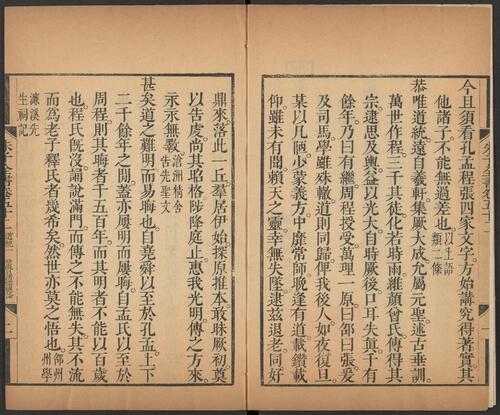 今且須看孔孟程張四家文字方始講究得著實其
他諸子不能無過差也以上語類二條
恭唯道統遠自羲軒集厥大成允屬元聖述古垂訓
萬世作程三千其徒化若時雨維顏曾氏傳得其
宗逮思及輿益以光大自時厥後口耳失眞千有
餘年乃曰有繼周程授受萬理一原曰邵曰張爰
及司馬學雖殊轍道則同歸俾我後人如夜復旦
某以凡陋少蒙義方中靡常師晚逢有道載鑽載
仰雖未有聞賴天之靈幸無失墜逮茲退老同好
鼎來落此一丘羣居伊始探原推本敢昧厥初奠
以告虔尚其昭格陟降庭止惠我光明傳之方來
永永無斁滄洲精舍告先聖文
甚矣道之難明而易晦也自堯舜以至於孔孟上下
二千餘年之閒蓋亦屢明而屢晦自孟氏以至於
周程則其晦者千五百年而其明者不能以百歲
也程氏旣沒誦說滿門而傳之不能無失其不流
而爲老子釋氏者幾希矣然世亦莫之悟也邵州學
濂溪先生祠記